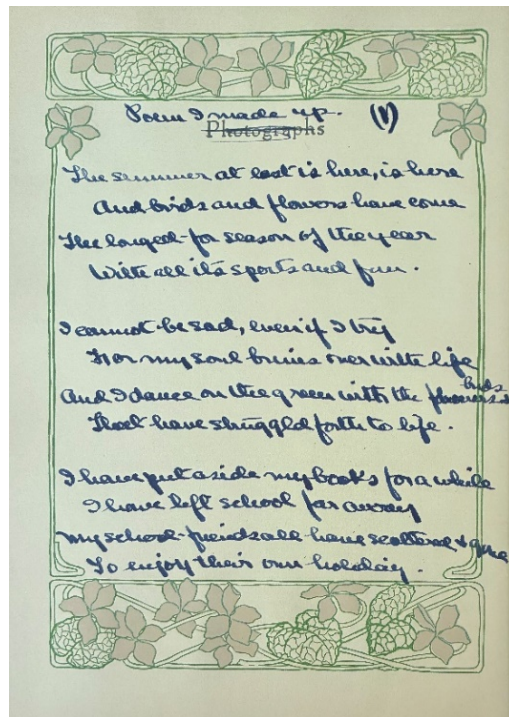 Poem I made up. (1)
Photographs
The summer at last is here, is here
And birds and flowers have come
The longed-for season of the year
With all its sports and fun.
I cannot be sad, even if I try
For my soul brims over with life
And I dance on the green with the buds
That have struggled forth to life.
I have put aside my books for a while
I have left school far away
My school-friends all have scattered & gone
To enjoy their own holiday.